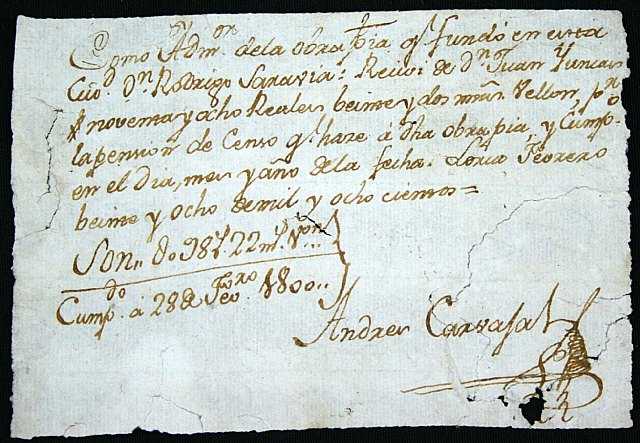 Como Adm.or de la obra pia q.e fundó en esta
Ciu.d D.n Rodrigo Saravia: Reciví de D.n Juan
noventa y ocho Reales beinte y dos mrs. Vellon, p.r
la pension de Censo q.e haze á dha obra pia, y Cump.do
en el Dia, mes y año de la fecha. Loria Febrero
beinte y ocho de mil y ocho cientos=
Son,, 98 r.s 22 m.s v.on
Cump.do á 28 de Feb.ro 1800..
Andres Carvasal